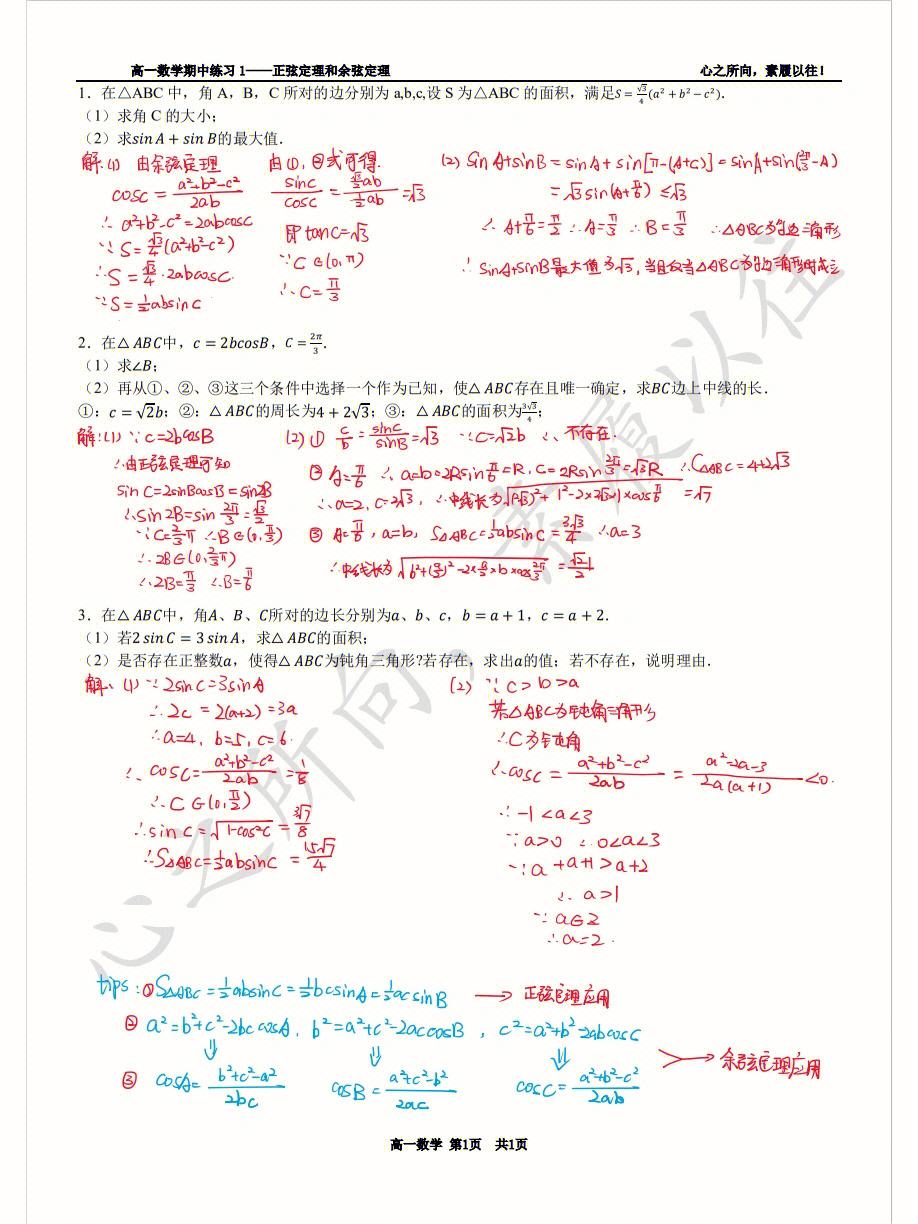 高一数学期中练习 1——正弦定理和余弦定理 心之所向，素履以往！
1．在△ABC 中，角 A，B，C 所对的边分别为 a,b,c,设 S 为△ABC 的面积，满足S = √3/4 (a² + b² − c²)．
（1）求角 C 的大小；
（2）求sin A + sin B的最大值．
解(1) 由余弦定理
cosC = (a²+b²-c²)/(2ab)
∴ a²+b²-c² = 2abcosC
∵ S = √3/4 (a²+b²-c²)
∴ S = √3/4 · 2abcosC.
∵ S = ½absinC
由①,②式可得.
sinC/cosC = (√3/2 ab)/(½ab) = √3
即 tanC = √3
∵ C∈(0,π)
∴ C = π/3
(2) sinA+sinB = sinA + sin[π-(A+C)] = sinA+sin(2π/3-A)
= √3sin(A+π/6) ≤ √3
∴ A+π/6 = π/2 ∴ A = π/3 ∴ B = π/3 ∴ △ABC为等边三角形
∴ sinA+sinB最大值为√3, 当且仅当△ABC为等边三角形时成立
2．在△ ABC中，c = 2bcosB，C = 2π/3．
（1）求∠B；
（2）再从①、②、③这三个条件中选择一个作为已知，使△ ABC存在且唯一确定，求BC边上中线的长．
①：c = √2b；②：△ ABC的周长为4 + 2√3；③：△ ABC的面积为3√3/4；
解:(1) ∵ c=2bcosB
∴由正弦定理可知
sinC=2sinBcosB=sin2B
∴ sin2B=sin 2π/3 = √3/2
∵ C=2/3π ∴ B∈(0,π/3)
∴ 2B∈(0,2/3π)
∴ 2B=π/3 ∴ B=π/6
(2) ① c/b = sinC/sinB = √3 ∵ c=√2b ∴ 不存在.
② A=π/6 ∴ a=b=2Rsin π/6=R, c=2Rsin 2π/3=√3R ∴ C△ABC=4+2√3
∴ a=2, c=2√3, ∴ 中线长为√((2√3)²+1²-2×2√3×1×cos π/6) = √7
③ A=π/6, a=b, S△ABC=½absinC = 3√3/4 ∴ a=√3
∴ 中线长为√(b²+(a/2)²-2×a/2×b×cos 2π/3) = √21/2
3．在△ ABC中，角A、B、C所对的边长分别为a、b、c，b = a + 1，c = a + 2．
（1）若2 sin C = 3 sin A，求△ ABC的面积；
（2）是否存在正整数a，使得△ ABC为钝角三角形?若存在，求出a的值；若不存在，说明理由．
解、(1) ∵ 2sinC=3sinA
∴ 2c = 2(a+2) = 3a
∴ a=4, b=5, c=6.
∴ cosC = (a²+b²-c²)/(2ab) = 1/8
∴ C∈(0,π/2)
∴ sinC = √(1-cos²C) = 3√7/8
∴ S△ABC = ½absinC = 15√7/4
(2) ∵ c>b>a
若△ABC为钝角三角形
∴ C为钝角
∴ cosC = (a²+b²-c²)/(2ab) = (a²-2a-3)/(2a(a+1)) <0.
∴ -1<a<3
∵ a>0 ∴ 0<a<3
∵ a+a+1>a+2
∴ a>1
∵ a∈Z
∴ a=2.
tips: ① S△ABC = ½absinC = ½bcsinA = ½acsinB → 正弦定理应用
② a²=b²+c²-2bccosA, b²=a²+c²-2accosB, c²=a²+b²-2abcosC
③ cosA = (b²+c²-a²)/(2bc) cosB = (a²+c²-b²)/(2ac) cosC = (a²+b²-c²)/(2ab) → 余弦定理应用
心之所向，素履以往
高一数学 第1页 共1页